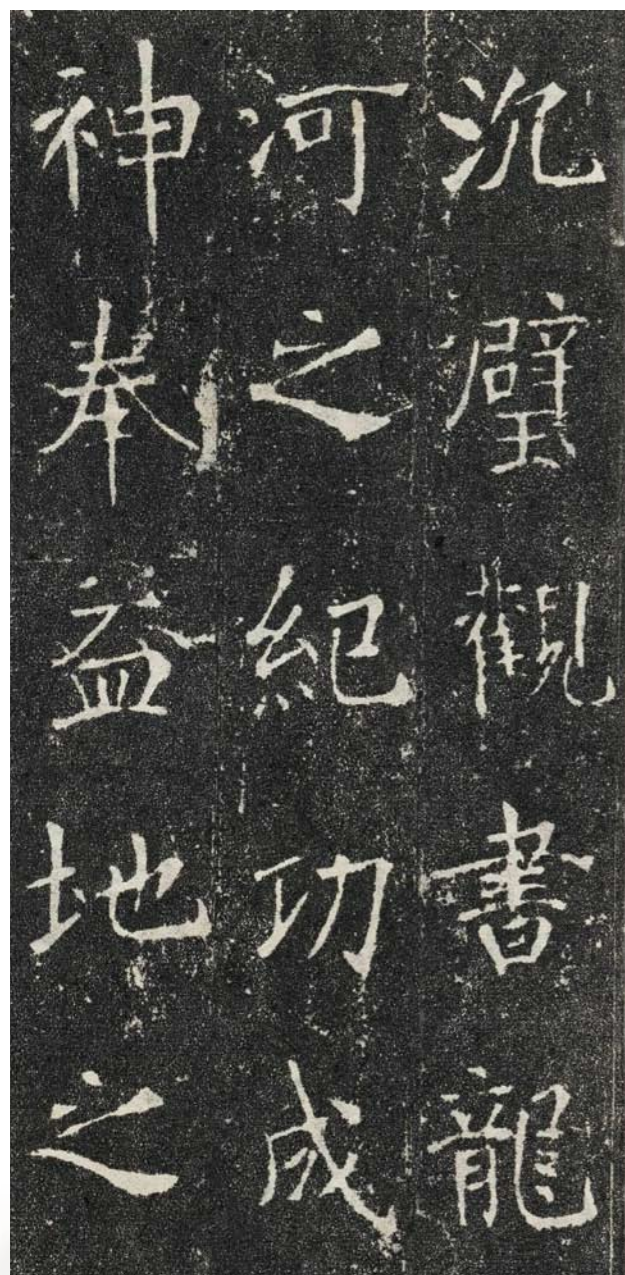 沉璧觀書龍
河之紀功成
神奉益地之